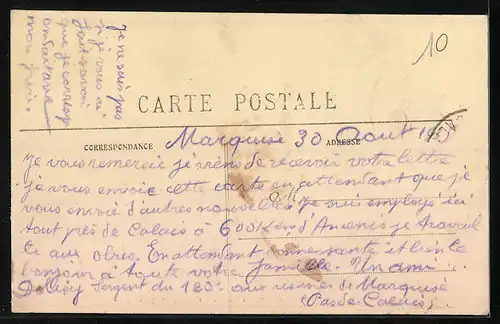 10
Je ne sais pas
si je vous ai
fait savoir
que je corresp
mon frère.
CARTE POSTALE
CORRESPONDANCE
ADRESSE
Marquise 30 Aout 19
Je vous remercie je viens de recevoir votre lettre
je vous envoie cette carte en attendant que je
vous envoie d'autres nouvelles. Je suis employé ici
tout près de Calais à 600 Km d'Ancenis je travail
le aux obus. En attendant bonne santé et bien le
bonjour à toute votre famille. Un ami
Sergent du 120e aux usines de Marquise
(Pas de Calais)